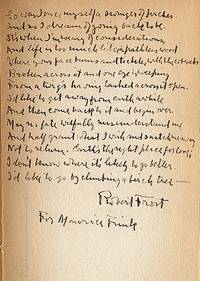 So was I once myself a swinger of birches
And so I dream of going back to be.
It's when I'm weary of considerations
And life is too much like a pathless wood
Where your face burns and tickles with the cobwebs
Broken across it and one eye is weeping
From a twig's having lashed across it open.
I'd like to get away from earth awhile
And then come back to it and begin over.
May no fate wilfully misunderstand me
And half grant what I wish and snatch me away
Not to return. Earth's the right place for love;
I don't know where it's likely to go better.
I'd like to go by climbing a birch tree —
Robert Frost
For Maurice Frink